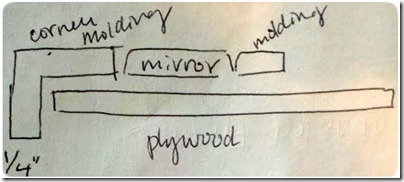 corner molding
molding
mirror
plywood
1/4"